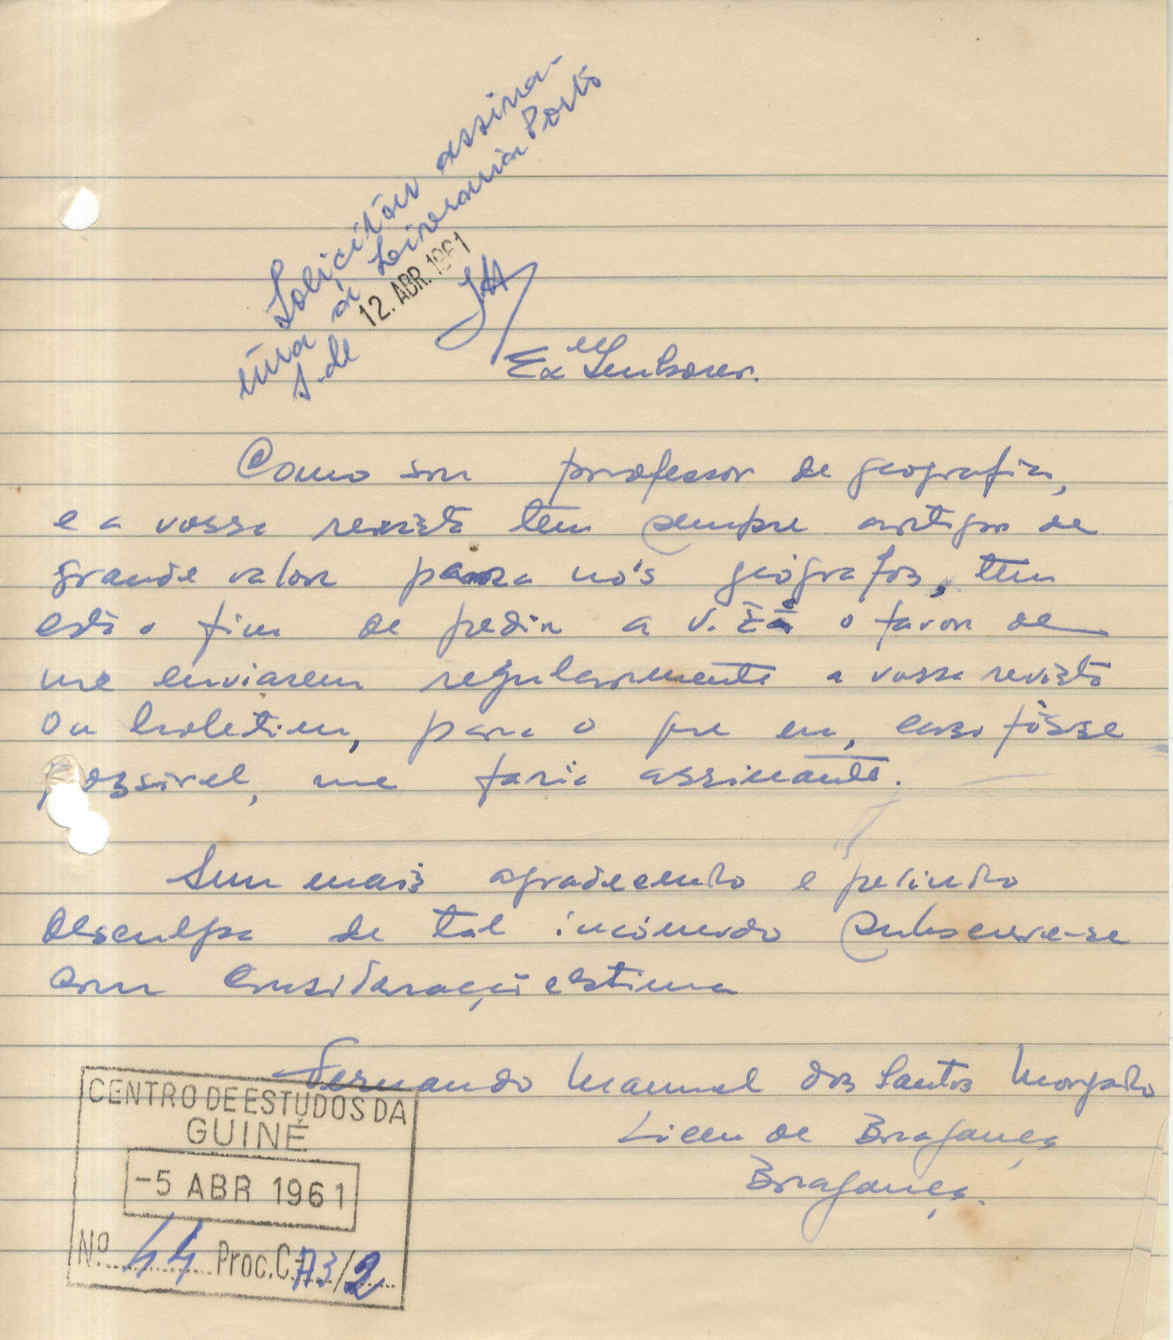 Solicitar assina-
tura à Livraria Porto
S. de
12. ABR. 1961
Ex.mos Senhores.
Como sou professor de geografia,
e a vossa revista tem sempre artigos de
grande valor para nós geógrafos, tem
esta o fim de pedir a V. Exª o favor de
me enviarem regularmente a vossa revista
ou boletim, para o que eu, caso fôsse
possivel, me faria assinante.
Sem mais agradecendo e pedindo
desculpa de tal incómodo subscreve-se
com consideração e estima
Fernando Manuel dos Santos Morgado
Liceu de Bragança
Bragança.
CENTRO DE ESTUDOS DA
GUINÉ
-5 ABR 1961
Nº 44 Proc. C. A3/2